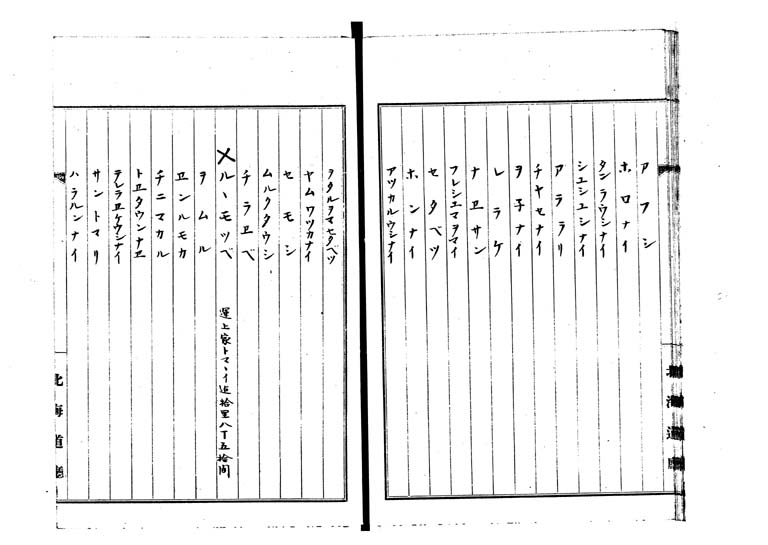 アフシ
ホロナイ
タンラウシナイ
シエシエシナイ
アラリ
チヤセナイ
ヲ子ナイ
レラケ
ナヱサン
フレシエマヲマイ
セタベツ
ホンナイ
アツカルウシナイ
北海道廳
ヲタルヲマセタベツ
ヤムワツカナイ
セモシ
ムルクタウシ
チラヱベ
〆ルヽモツベ 運上家トマヽイ迄拾里八丁五拾間
ヲムル
ヱンルモカ
チニマカル
トヱタウンナヱ
テレラヱケウシナイ
サントマリ
ハラルンナイ
北海道廳